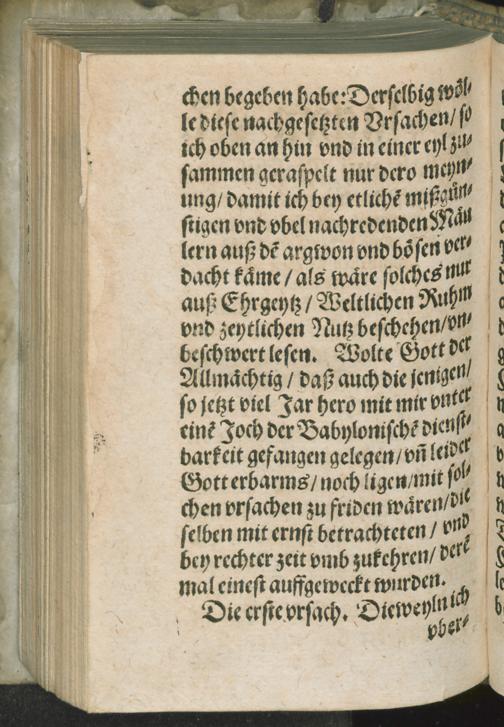 chen begeben habe: Derselbig wöl⸗
le diese nachgesetzten Vrsachen/ so
ich oben an hin vnd in einer eyl zu⸗
sammen geraspelt nur dero meyn⸗
ung/ damit ich bey etlichē mißgün⸗
stigen vnd vbel nachredenden Mäu
lern auß dē argwon vnd bösen ver⸗
dacht käme / als wäre solches nur
auß Ehrgeytz / Weltlichen Ruhm
vnd zeytlichen Nutz beschehen/ vn⸗
beschwert lesen. Wolte Gott der
Allmächtig / daß auch die jenigen/
so jetzt viel Jar hero mit mir vnter
einē Joch der Babylonischē dienst⸗
barkeit gefangen gelegen/ vñ leider
Gott erbarms/ noch ligen/ mit sol⸗
chen vrsachen zu friden wären/ die
selben mit ernst betrachteten / vnd
bey rechter zeit vmb zukehren/ derē
mal einest auffgeweckt wurden.
Die erste vrsach. Dieweyln ich
vber⸗